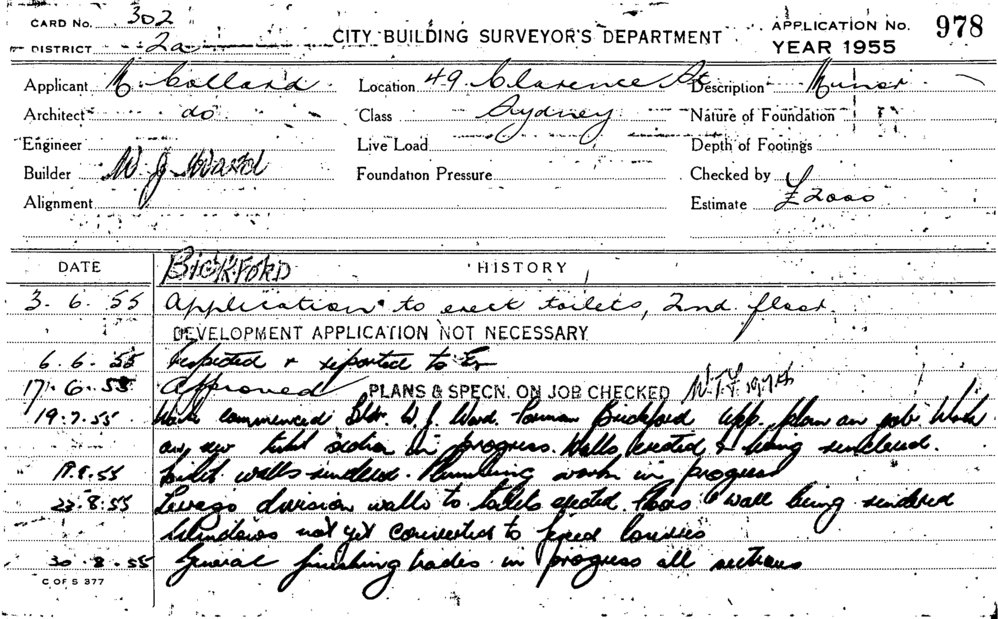 CARD No. 302
DISTRICT 2a
CITY BUILDING SURVEYOR'S DEPARTMENT
APPLICATION No. 978
YEAR 1955
Applicant N. Collard Location 49 Clarence St Description Minor
Architect do Class Sydney Nature of Foundation
Engineer Live Load Depth of Footings
Builder W. J. Ward Foundation Pressure Checked by
Alignment Estimate £2000
DATE BICKFORD HISTORY
3.6.55 Application to erect toilets, 2nd floor.
DEVELOPMENT APPLICATION NOT NECESSARY
6.6.55 Inspected & reported to
17.6.55 Approved PLANS & SPECN. ON JOB CHECKED
19.7.55 Work commenced Bldr. W. J. Ward. Foreman Bickford App. plan on job Work
on new toilet section in progress. Walls erected & being rendered.
18.8.55 Toilet walls rendered. Plumbing work in progress
23.8.55 division walls to toilets erected. & wall being rendered
Windows not yet converted to fixed louvres
30.8.55 General finishing trades in progress all sections
C OF S 377